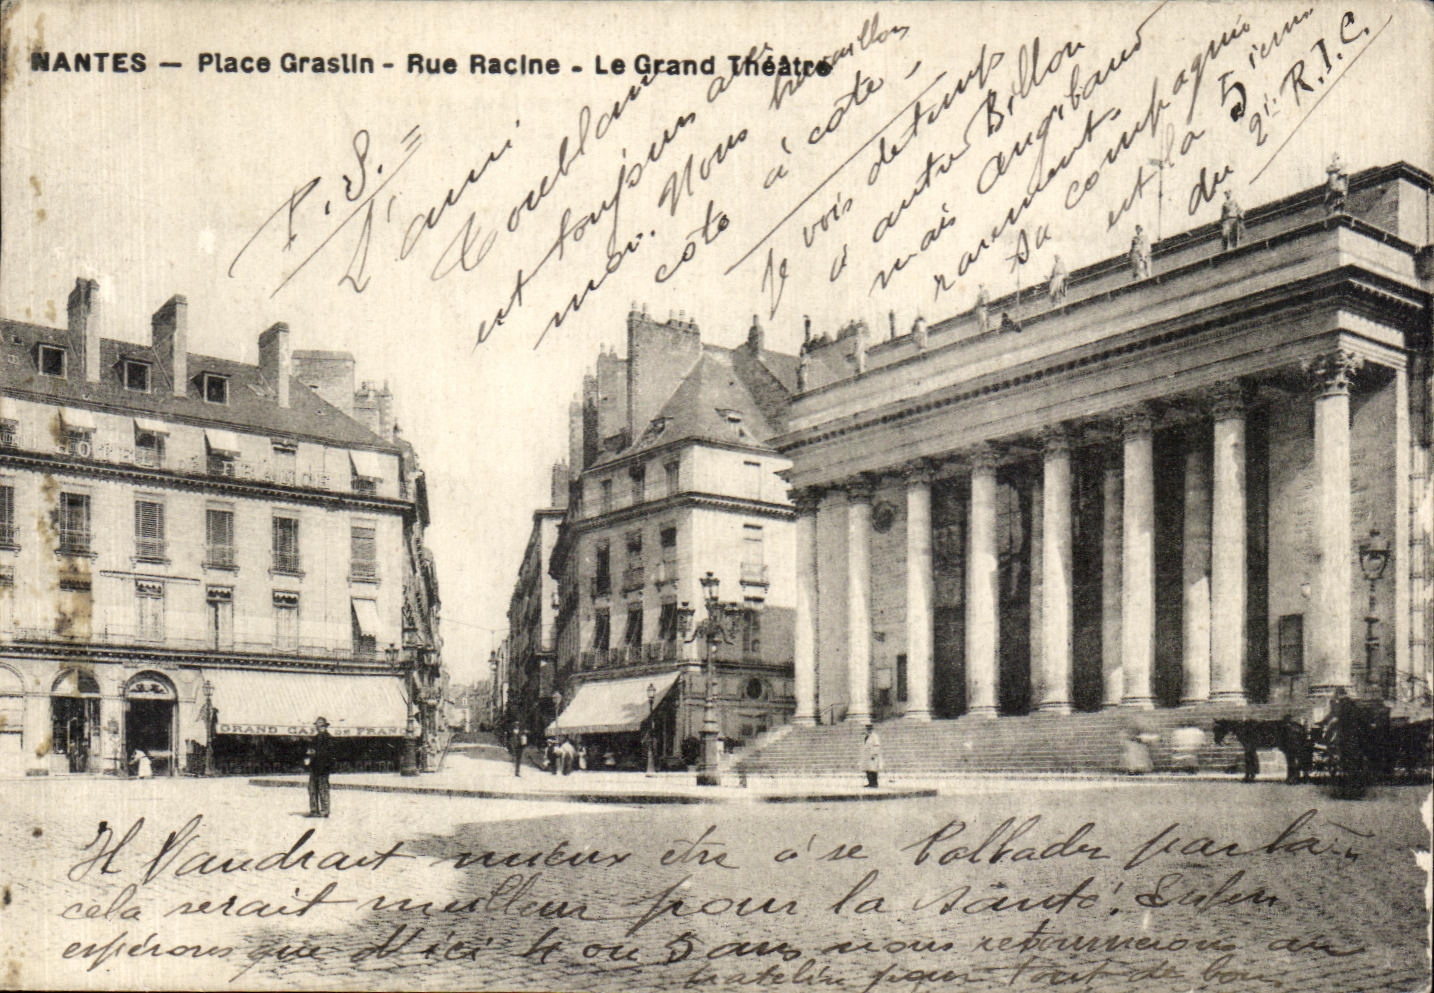 NANTES — Place Graslin - Rue Racine - Le Grand Théâtre
P.S. =
L'ami
Toublanc
est toujours avec
moi. Nous travaillons
côte à côte -
Je vois de temps
à autre Billon
mais Angibaud
rarement.
Sa compagnie
est la 5ième
du 2e R.I.C.
HOTEL DE FRANCE
GRAND CAFE DE FRANCE
Il Vaudrait mieux être à se Ballader par là..
cela serait meilleur pour la santé! Enfin
espérons que d'ici 4 ou 5 ans nous retournerons au
pour tout de bon